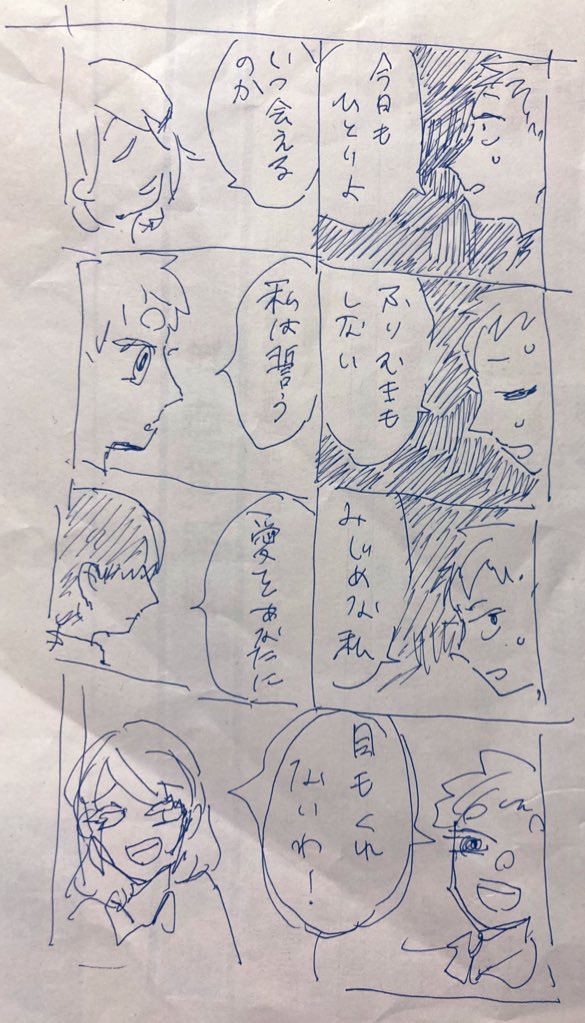 今日も
ひとりよ
いつ会える
のか
ふりむきも
しない
私は誓う
みじめな私
愛をあなたに
目もくれ
ないわ!